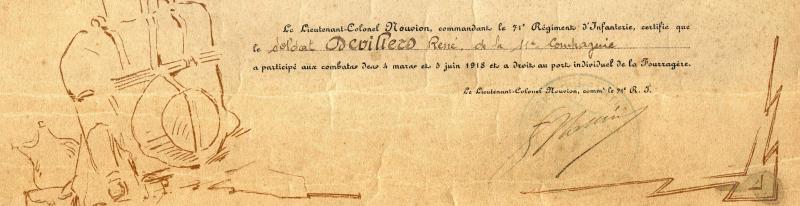 Le Lieutenant-Colonel Nouvion, commandant le 71e Régiment d'Infanterie, certifie que
le soldat Devillers René de la 11e Compagnie
a participé aux combats des 4 mars et 5 juin 1918 et a droit au port individuel de la Fourragère.
Le Lieutenant-Colonel Nouvion, commt le 71e R. I.